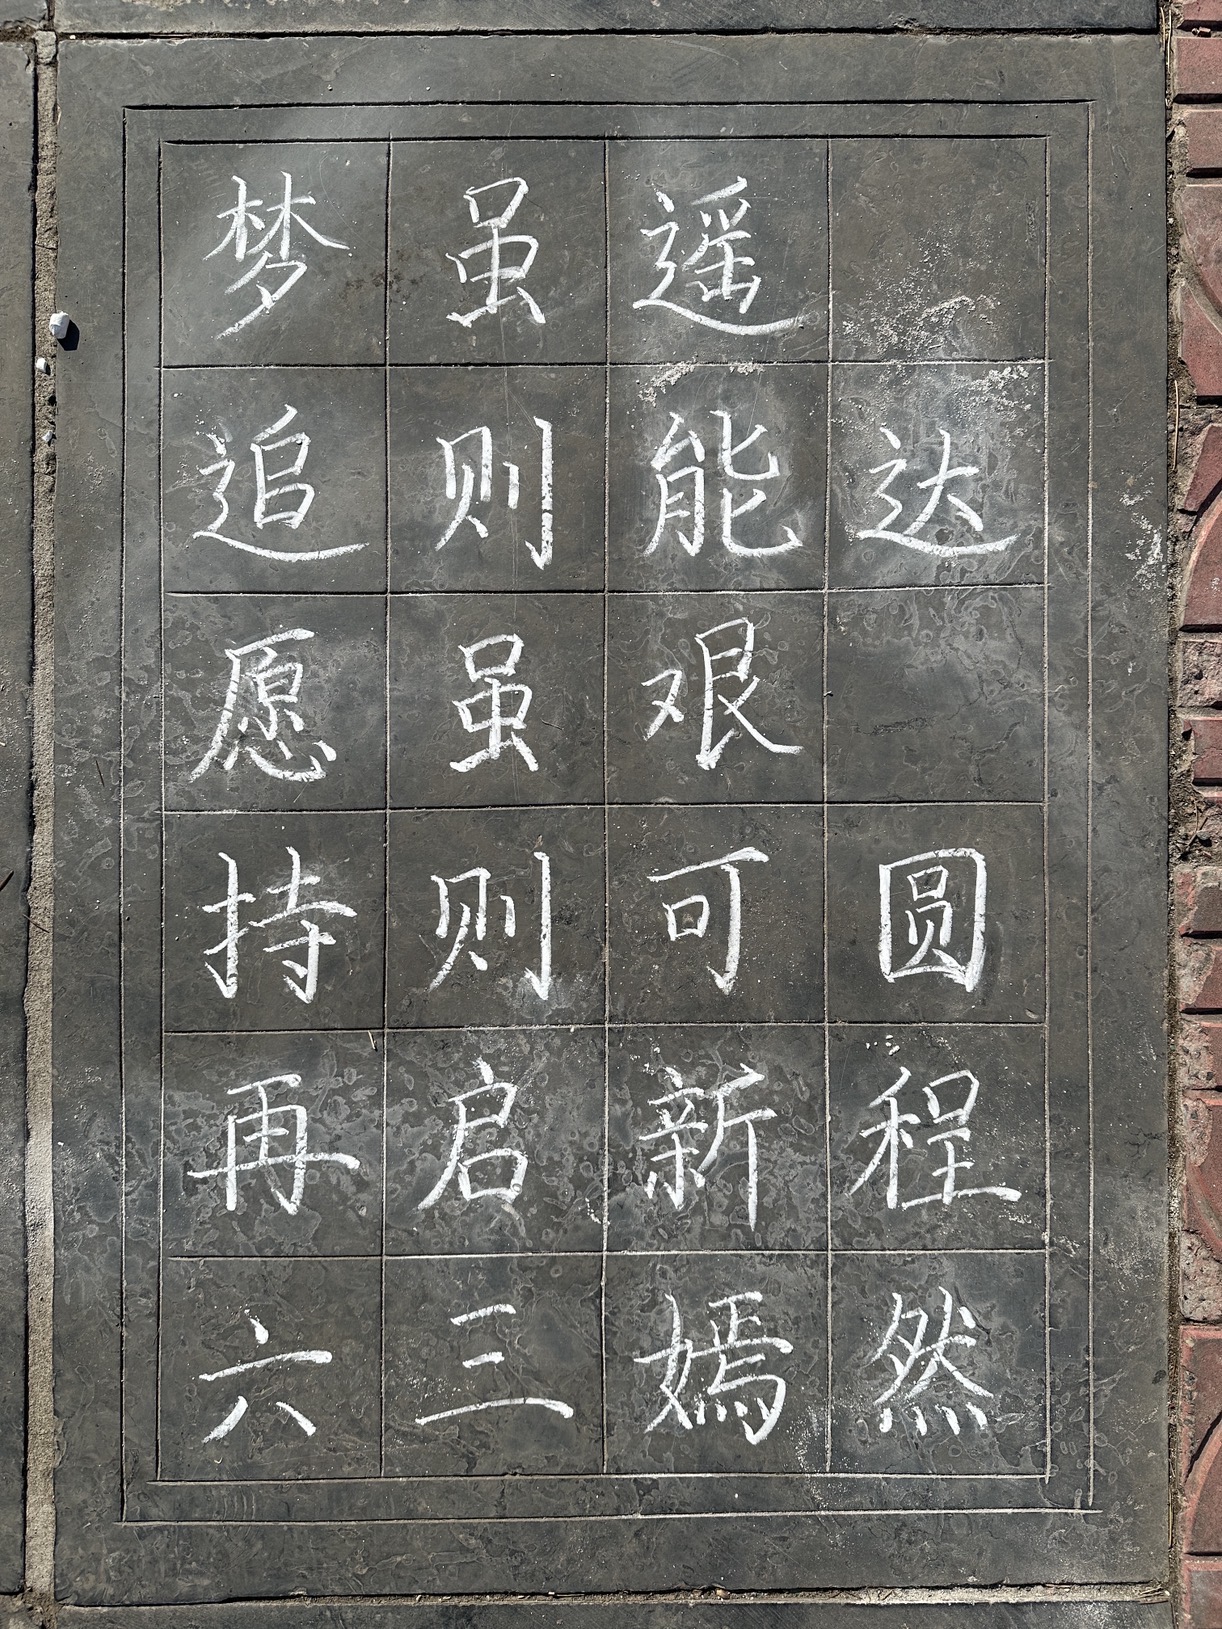 梦虽遥
追则能达
愿虽艰
持则可圆
再启新程
六三嫣然